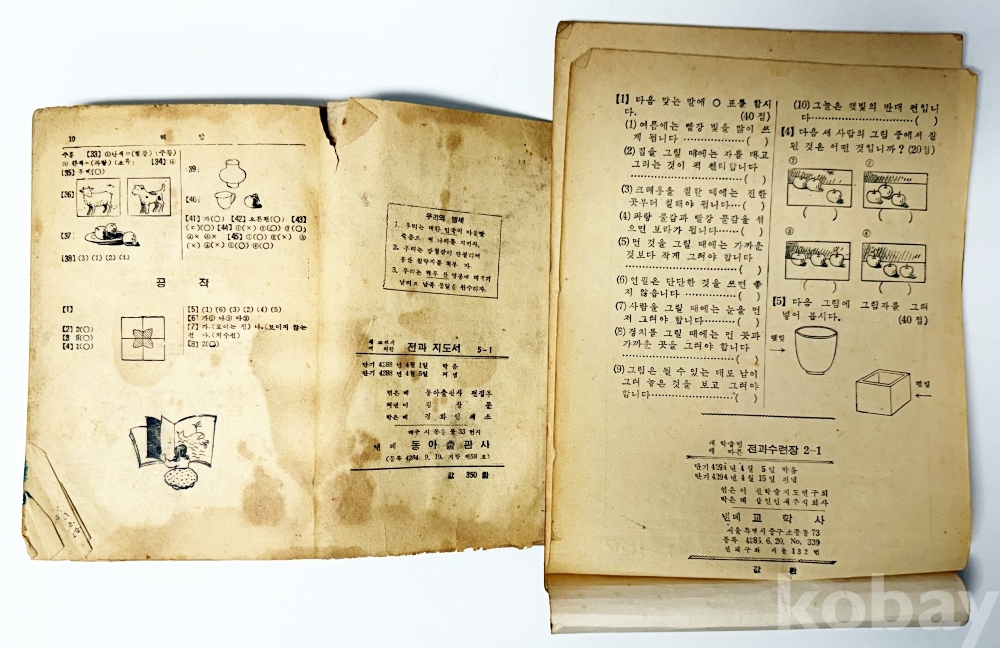 10
[33]
[34]
[35]
[36]
[39]
[40]
[37]
[41] 가(○) [42] 오른편(○) [43]
[38] (3) (1) (2) (4)
공 작
[1]
[2] 2(○)
[3] 5(○)
[4] 1(○)
[5] (1) (6) (3) (2) (4) (5)
[7] 가. (보이는 선) 나. (보이지 않는
선
우리의 맹세
1. 우리는 대한 민국의 아들 딸
죽음으로써 나라를 지키자.
2. 우리는 강철같이 단결하여
3. 우리는 백두산 영봉에 태극기
날리고 남북 통일을 완수하자.
전과 지도서 5-1
단기 4288 년 4월 1일 박음
단기 4288 년 4월 5일 펴냄
엮은데 동아출판사 편집부
펴낸이 김 상 문
펴낸데 동아출판사
(등록 4284. 9. 19. 지방 제58호)
값 350 환
【1】 다음 맞는 말에 ○ 표를 합시
다. (40점)
(1) 여름에는 빨강 빛을 많이 쓰
게 됩니다 ( )
(2) 집을 그릴 때에는 자를 대고
그리는 것이 퍽 편리합니다
( )
(3) 크레용을 칠할 때에는 진한
곳부터 칠해야 됩니다 ( )
(4) 파랑 물감과 빨강 물감을 섞
으면 보라가 됩니다 ( )
(5) 먼 것을 그릴 때에는 가까운
것보다 작게 그려야 합니다
( )
(6) 연필은 단단한 것을 쓰면 좋
지 않습니다 ( )
(7) 사람을 그릴 때에는 눈을 먼
저 그려야 합니다 ( )
(8) 경치를 그릴 때에는 먼 곳과
가까운 곳을 그려야 합니다
( )
(9) 그림은 될 수 있는 대로 남이
그려 놓은 것을 보고 그려야
합니다 ( )
(10) 그늘은 햇빛의 반대 편입니
다 ( )
【4】 다음 새 사람의 그림 중에서 잘
된 것은 어떤 것입니까? (20점)
① ②
( ) ( )
③ ④
( ) ( )
【5】 다음 그림에 그림자를 그려
넣어 봅시다. (40점)
햇빛
햇빛
새 학습법에 따른 전과수련장 2-1
단기 4294 년 4월 5일 박음
단기 4294 년 4월 15일 펴냄
엮은이 신학습지도연구회
펴낸데 교 학 사
서울특별시중구소공동 73
등록 4285. 6. 20. No. 339
진체구좌 서울 132 번
값 환
kobay